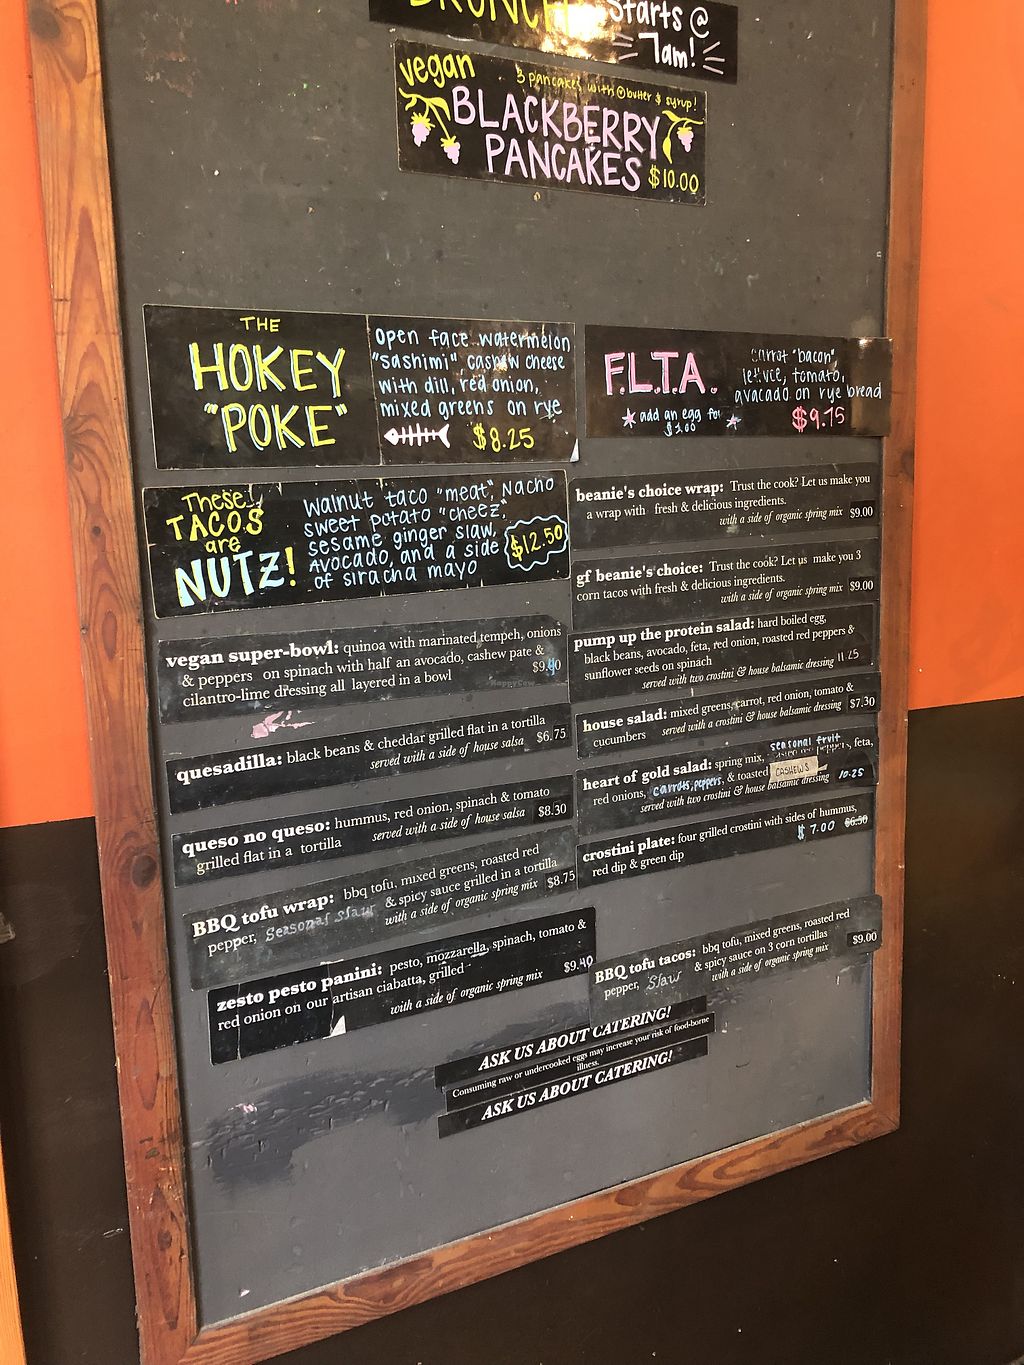 BRUNCH Starts @
7am!
vegan
3 pancakes with butter & syrup!
BLACKBERRY
PANCAKES $10.00
THE
HOKEY
"POKE"
Open face watermelon
"sashimi", cashew cheese
with dill, red onion,
mixed greens on rye
$8.25
F.L.T.A.
carrot "bacon",
lettuce, tomato,
avacado on rye bread
add an egg for
$9.75
These
TACOS
are
NUTZ!
Walnut taco "meat", Nacho
sweet potato "cheez",
sesame ginger slaw,
Avocado, and a side
of siracha mayo
$12.50
vegan super-bowl: quinoa with marinated tempeh, onions
& peppers on spinach with half an avocado, cashew pate &
cilantro-lime dressing all layered in a bowl
$9.40
HappyCow
quesadilla: black beans & cheddar grilled flat in a tortilla
served with a side of house salsa $6.75
queso no queso: hummus, red onion, spinach & tomato
grilled flat in a tortilla served with a side of house salsa $8.30
BBQ tofu wrap: bbq tofu, mixed greens, roasted red
pepper, Seasonal Slaw & spicy sauce grilled in a tortilla
with a side of organic spring mix $8.75
zesto pesto panini: pesto, mozzarella, spinach, tomato &
red onion on our artisan ciabatta, grilled
with a side of organic spring mix $9.40
beanie's choice wrap: Trust the cook? Let us make you
a wrap with fresh & delicious ingredients.
with a side of organic spring mix $9.00
gf beanie's choice: Trust the cook? Let us make you 3
corn tacos with fresh & delicious ingredients.
with a side of organic spring mix $9.00
pump up the protein salad: hard boiled egg,
black beans, avocado, feta, red onion, roasted red peppers &
sunflower seeds on spinach
served with two crostini & house balsamic dressing 11.25
house salad: mixed greens, carrot, red onion, tomato &
cucumbers served with a crostini & house balsamic dressing $7.30
seasonal fruit
heart of gold salad: spring mix, feta,
red onions, carrots, peppers, & toasted CASHEWS
served with two crostini & house balsamic dressing 10.25
crostini plate: four grilled crostini with sides of hummus,
red dip & green dip $7.00 $6.50
BBQ tofu tacos: bbq tofu, mixed greens, roasted red
pepper, Slaw & spicy sauce on 3 corn tortillas
with a side of organic spring mix $9.00
ASK US ABOUT CATERING!
Consuming raw or undercooked eggs may increase your risk of food-borne
illness.
ASK US ABOUT CATERING!